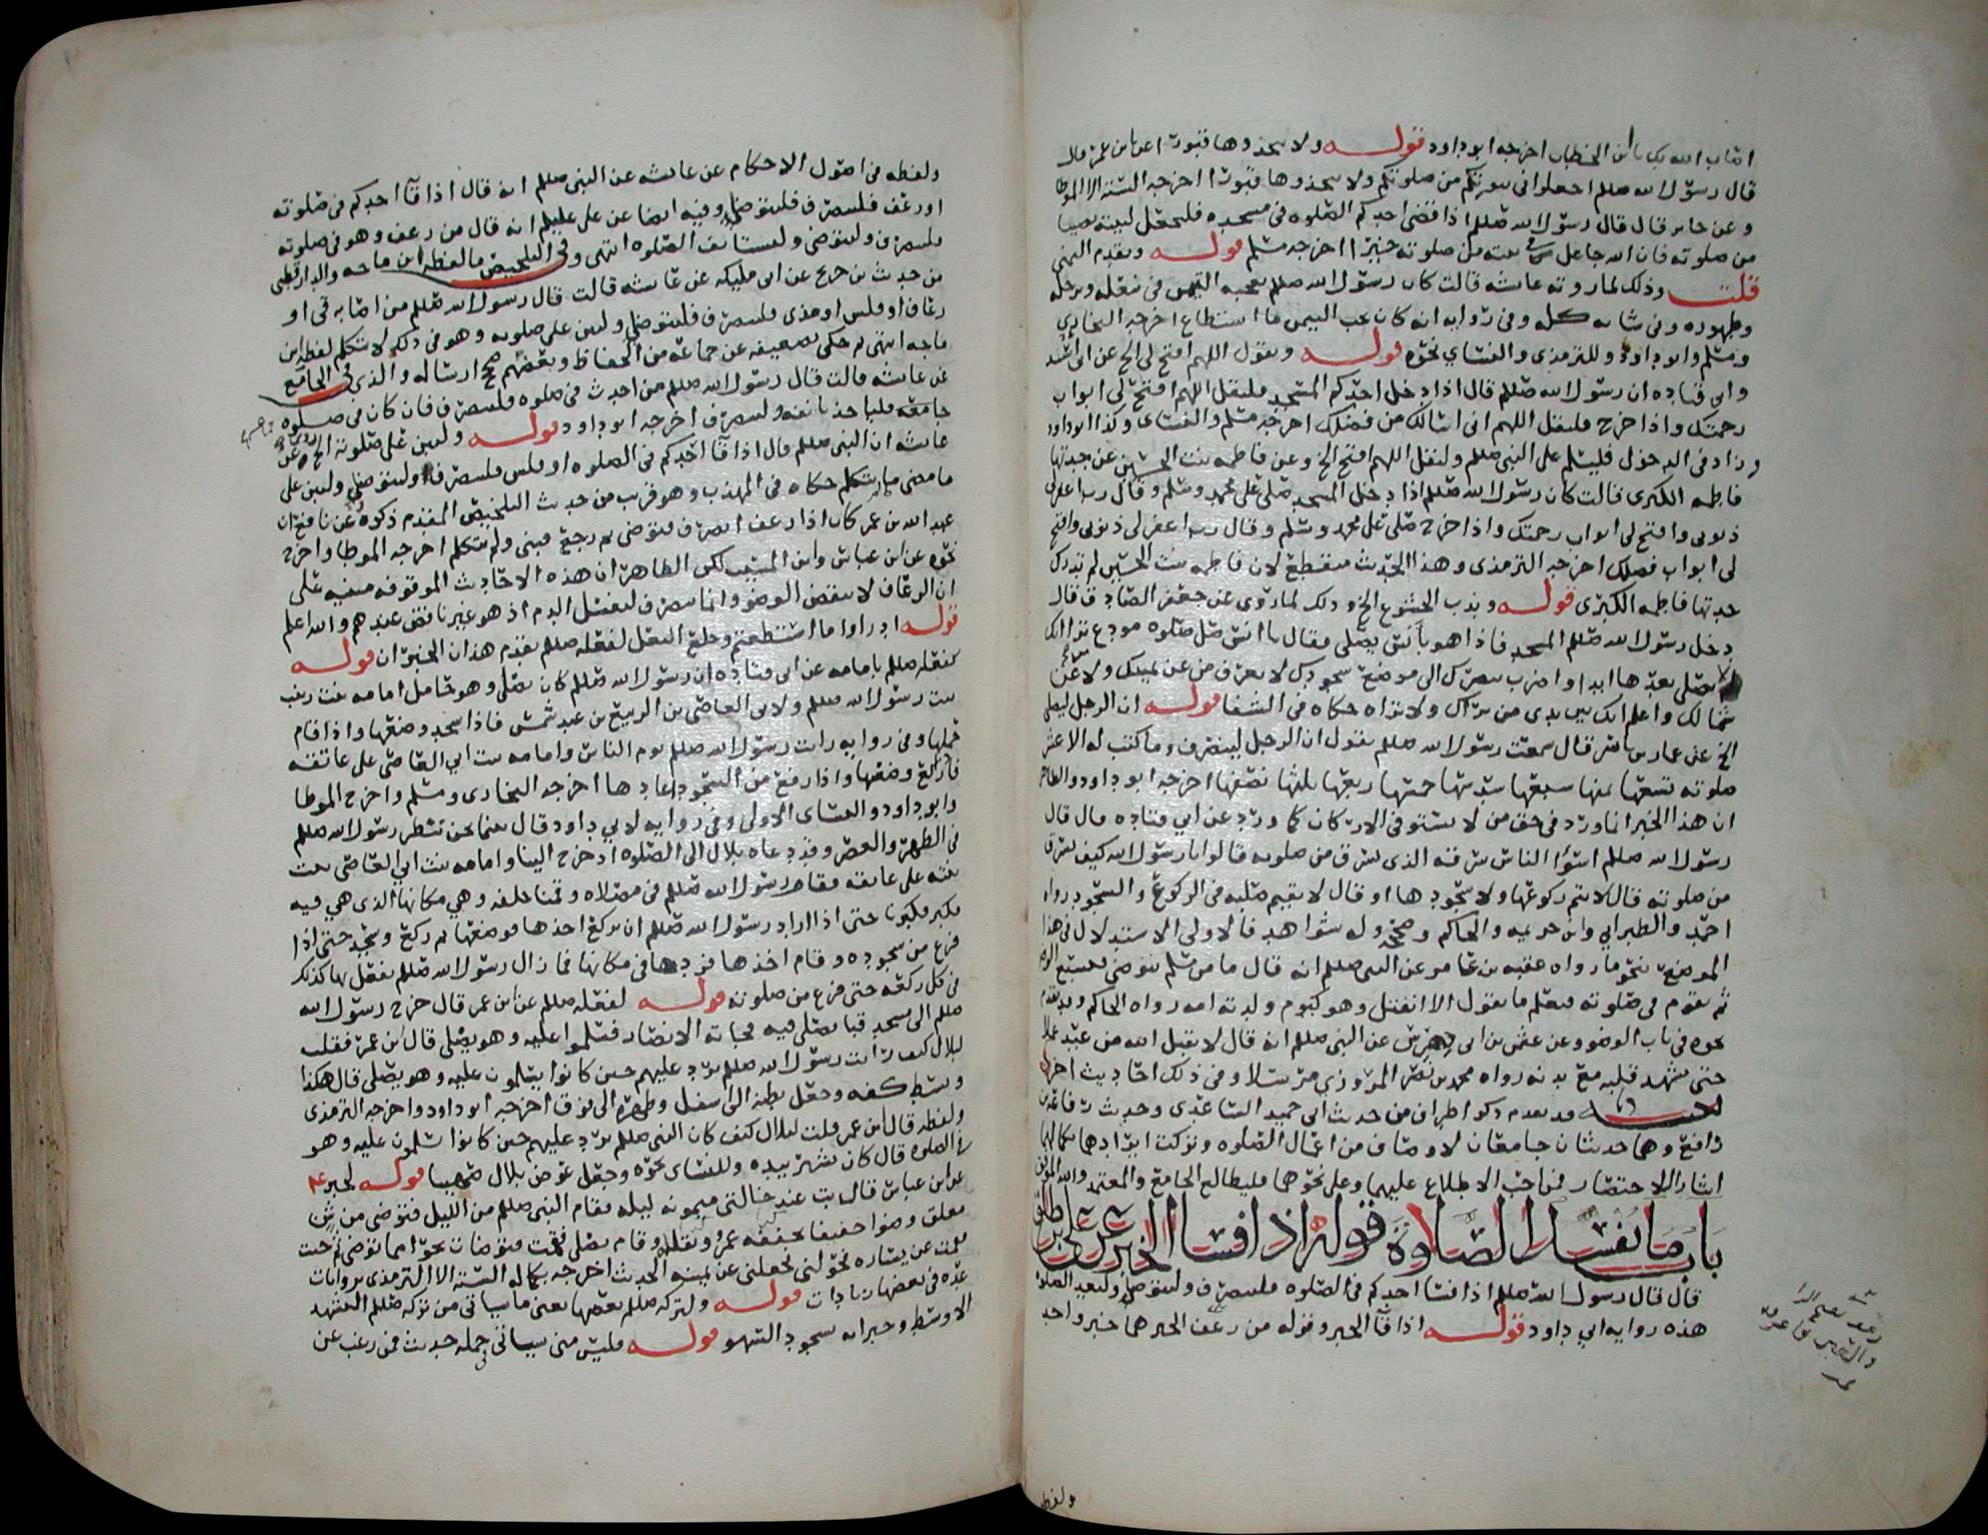 اصاب الله بك يا ابن الخطاب اخرجه ابو داود قوله ولا يتخذوها قبورا عن ابن عمر قال
قال رسول الله صللم اجعلوا في بيوتكم من صلوتكم ولا تتخذوها قبورا اخرجه الستة الا الموطا
وعن جابر قال قال رسول الله صللم اذا قضى احدكم الصلوة في مسجده فليجعل لبيته نصيبا
من صلوته فان الله جاعل في بيته من صلوته خيرا اخرجه مسلم قوله وتقدم اليمنى
قلت وذلك لما روته عايشه قالت كان رسول الله صللم يعجبه التيمن في تنعله وترجله
وطهوره وفي شانه كله وفي روايه انه كان يحب اليمن ما استطاع اخرجه البخاري
ومسلم وابو داود وللترمذي والنساي نحوه قوله ويقول اللهم افتح لي الخ عن ابي اسيد
وابي قتاده ان رسول الله صللم قال اذا دخل احدكم المسجد فليقل اللهم افتح لي ابواب
رحمتك واذا خرج فليقل اللهم اني اسالك من فضلك اخرجه مسلم والنساي وكذا ابو داود
وزاد في الدخول فليسلم على النبي صللم وليقل اللهم افتح الخ وعن فاطمه بنت الحسين عن جدتها
فاطمه الكبرى قالت كان رسول الله صللم اذا دخل المسجد صلى على محمد وسلم وقال رب اغفر لي
ذنوبي وافتح لي ابواب رحمتك واذا خرج صلى على محمد وسلم وقال رب اغفر لي ذنوبي وافتح
لي ابواب فضلك اخرجه الترمذي وهذا الحديث منقطع لان فاطمه بنت الحسين لم تدرك
جدتها فاطمه الكبرى قوله وندب الخشوع الخ وذلك لما روي عن جعفر الصادق قال
دخل رسول الله صللم المسجد فاذا هو بانس يصلي فقال يا انس صل صلوة مودع ترا انك
لا تصلي بعدها ابدا واضرب ببصرك الى موضع سجودك لا تعرف من عن يمينك ولا عن
شمالك واعلم انك بين يدي من يراك ولا تراه حكاه في الشفا قوله ان الرجل ليصلي
الخ عن عمار بن ياسر قال سمعت رسول الله صللم يقول ان الرجل لينصرف وما كتب له الا عشر
صلوته تسعها ثمنها سبعها سدسها خمسها ربعها ثلثها نصفها اخرجه ابو داود والظاهر
ان هذا الخبر انما ورد في حق من لا يستوفي الاركان كما ورد عن ابي قتاده قال قال
رسول الله صللم اسوا الناس سرقة الذي يسرق من صلوته قالوا يا رسول الله كيف يسرق
من صلوته قال لا يتم ركوعها ولا سجودها او قال لا يقيم صلبه في الركوع والسجود رواه
احمد والطبراني وابن خزيمه والحاكم وصححه وله شواهد فالاولى الاستدلال في هذا
الموضع بنحو ما رواه عقبه بن عامر عن النبي صللم انه قال ما من مسلم يتوضى فيسبغ الوضو
ثم يقوم في صلوته فيعلم ما يقول الا انفتل وهو كيوم ولدته امه رواه الحاكم وقد تقدم
نحوه في باب الوضو وعن عثمن بن ابي دهرش عن النبي صللم انه قال لا يقبل الله من عبد عملا
حتى يشهد قلبه مع بدنه رواه محمد بن نصر المروزي مرسلا وفي ذلك احاديث اخر
تنبيه قد تقدم ذكر اطراف من حديث ابي حميد الساعدي وحديث رفاعة بن
رافع وهما حديثان جامعان لاوصاف من اعمال الصلوة وتركت ايرادهما بكمالهما
ايثارا للاختصار فمن احب الاطلاع عليهما وعلى نحوهما فليطالع الجامع والمعتمد والله الموفق
باب ما يفسد الصلاة قوله اذا فسا الخبر عن علي بن طلق
قال قال رسول الله صللم اذا فسا احدكم في الصلوه فلينصرف وليتوضا وليعد الصلاة
هذه روايه ابي داود قوله اذا قآ الخبر وقوله من رعف الخبر هما خبر واحد
ولفظه
ولفظه في اصول الاحكام عن عايشه عن النبي صللم انه قال اذا قآ احدكم في صلوته
او رعف فلينصرف فليتوضا وفيه ايضا عن علي عليلم انه قال من رعف وهو في صلوته
فلينصرف وليتوضى وليستانف الصلوه انتهى وفي التلخيص ما لفظه ابن ماجه والدارقطني
من حديث بن جريج عن ابن ابي مليكه عن عايشه قالت قال رسول الله صللم من اصابه قي او
رعاف او قلس او مذي فلينصرف فليتوضا وليبن على صلوته وهو في ذلك لا يتكلم لفظ ابن
ماجه انتهى ثم حكى تضعيفه عن جماعه من الحفاظ وبعضهم صحح ارساله والذي في الجامع
عن عايشه قالت قال رسول الله صللم من احدث في صلوه فلينصرف فان كان في صلوة
جامعه فلياخذ بانفه ولينصرف اخرجه ابو داود قوله وليبن على صلوته الخ وعن
عايشه ان النبي صللم قال اذا قآ احدكم في الصلوه او قلس فلينصرف وليتوضا وليبن على
ما مضى ما لم يتكلم حكاه في المهذب وهو قريب من حديث التلخيص المقدم ذكره وعن نافع ان
عبد الله بن عمر كان اذا رعف انصرف فتوضى ثم رجع فبنى ولم يتكلم اخرجه الموطا واخرج
نحوه عن ابن عباس وابن المسيب لكن الظاهر ان هذه الاحاديث الموقوفه مبنيه على
ان الرعاف لا ينقض الوضو وانما ينصرف ليغسل الدم اذ هو غير ناقض عندهم والله اعلم
قوله ادراوا ما استطعتم وخلع النعل لفعله صللم تقدم هذان الخبران قوله
كفعله صللم بامامه عن ابي قتاده ان رسول الله صللم كان يصلي وهو حامل امامه بنت زينب
بنت رسول الله صللم ولابي العاصي بن الربيع بن عبد شمس فاذا سجد وضعها واذا قام
حملها وفي روايه رايت رسول الله صللم يوم الناس وامامه بنت ابي العاصي على عاتقه
فاذا ركع وضعها واذا رفع من السجود اعادها اخرجه البخاري ومسلم واخرج الموطا
وابو داود والنساي الاولى وفي روايه لابي داود قال بينما نحن ننتظر رسول الله صللم
في الظهر والعصر وقد دعاه بلال الى الصلوه اذ خرج الينا وامامه بنت ابي العاصي بنت
بنته على عاتقه فقام رسول الله صللم في مصلاه وقمنا خلفه وهي مكانها الذي هي فيه
فكبر فكبرنا حتى اذا اراد رسول الله صللم ان يركع اخذها فوضعها ثم ركع وسجد حتى اذا
فرغ من سجوده وقام اخذها فردها في مكانها فما زال رسول الله صللم يفعل بها كذلك
في كل ركعه حتى فرغ من صلوته قوله لفعله صللم عن ابن عمر قال خرج رسول الله
صللم الى مسجد قبا يصلي فيه فجاته الانصار فسلموا عليه وهو يصلي قال ابن عمر فقلت
لبلال كيف رايت رسول الله صللم يرد عليهم حين كانوا يسلمون عليه وهو يصلي قال هكذا
وبسط كفه وجعل بطنه الى اسفل وظهره الى فوق اخرجه ابو داود واخرجه الترمذي
ولفظه قال ابن عمر قلت لبلال كيف كان النبي صللم يرد عليهم حين كانوا يسلمون عليه وهو
في الصلوه قال كان يشير بيده وللنساي نحوه وجعل عوض بلال صهيبا قوله لخبر
عن ابن عباس قال بت عند خالتي ميمونه ليله فقام النبي صللم من الليل فتوضى من شن
معلق وضوا خفيفا يخففه عمرو ويقلله وقام يصلي فقمت فتوضات نحوا مما توضى ثم جيت
فقمت عن يساره فحولني فجعلني عن يمينه الحديث اخرجه بكماله الستة الا الترمذي بروايات
عده في بعضها زيادات قوله ولتركه صللم بعضها يعني ما سياتي من تركه صللم التشهد
الاوسط وجبرانه بسجود السهو قوله فليس مني سياتي في جمله حديث فمن رغب عن